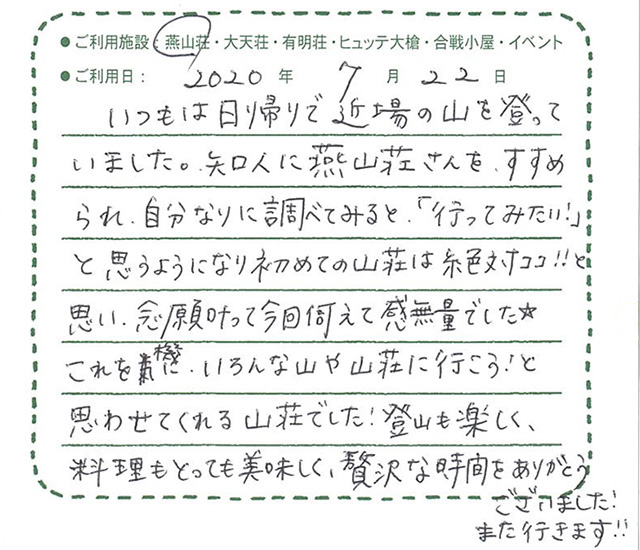 ●ご利用施設：燕山荘・大天荘・有明荘・ヒュッテ大槍・合戦小屋・イベント
●ご利用日： 2020 年 7 月 22 日
いつもは日り帰りで近場の山を登って
いました。知人に燕山荘さんを、すすめ
られ、自分なりに調べてみると、「行ってみたい!」
と思うようになり初めての山荘は絶対ココ!!と
思い、念願叶って今回伺えて感無量でした☆
これを機に、いろんな山や山荘に行こう!と
思わせてくれる山荘でした!登山も楽しく、
料理もとっても美味しく、贅沢な時間をありがとう
ございました!
また行きます!!